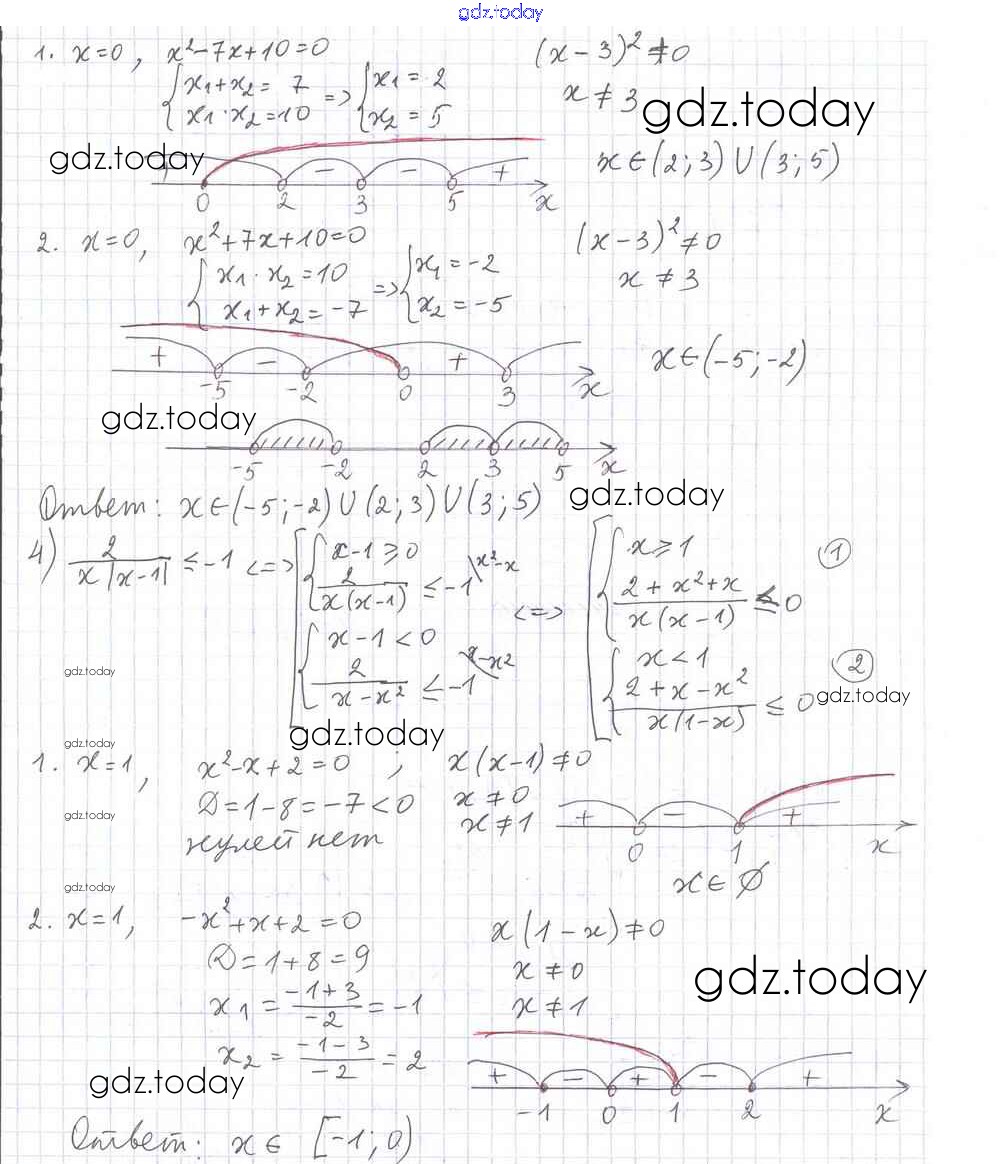 gdz.today
1. x=0, x²-7x+10=0 (x-3)²≠0
{x₁+x₂=7 x₁·x₂=10 => {x₁=2 x₂=5 x≠3
gdz.today
gdz.today
x∈(2;3)∪(3;5)
- - +
0 2 3 5 x
2. x=0, x²+7x+10=0 (x-3)²≠0
{x₁·x₂=10 x₁+x₂=-7 => {x₁=-2 x₂=-5 x≠3
+ - + x∈(-5;-2)
-5 -2 0 3 x
gdz.today
-5 -2 2 3 5 x
Ответ: x∈(-5;-2)∪(2;3)∪(3;5)
gdz.today
4) 2/(x|x-1|) ≤ -1 <=> [ {x-1≥0 2/(x(x-1)) ≤ -1 \x²-x {x-1<0 2/(x-x²) ≤ -1 \x-x² <=> [ {x≥1 (2+x²+x)/(x(x-1)) ≤ 0 ① {x<1 (2+x-x²)/(x(1-x)) ≤ 0 ②
gdz.today
gdz.today
gdz.today
gdz.today
1. x=1, x²-x+2=0; x(x-1)≠0
D=1-8=-7<0 x≠0
нулей нет x≠1
gdz.today
+ - +
0 1 x
x∈∅
gdz.today
2. x=1, -x²+x+2=0 x(1-x)≠0
D=1+8=9 x≠0
gdz.today
x₁=(-1+3)/-2=-1 x≠1
x₂=(-1-3)/-2=2
gdz.today
+ - + - +
-1 0 1 2 x
Ответ: x∈[-1;0)